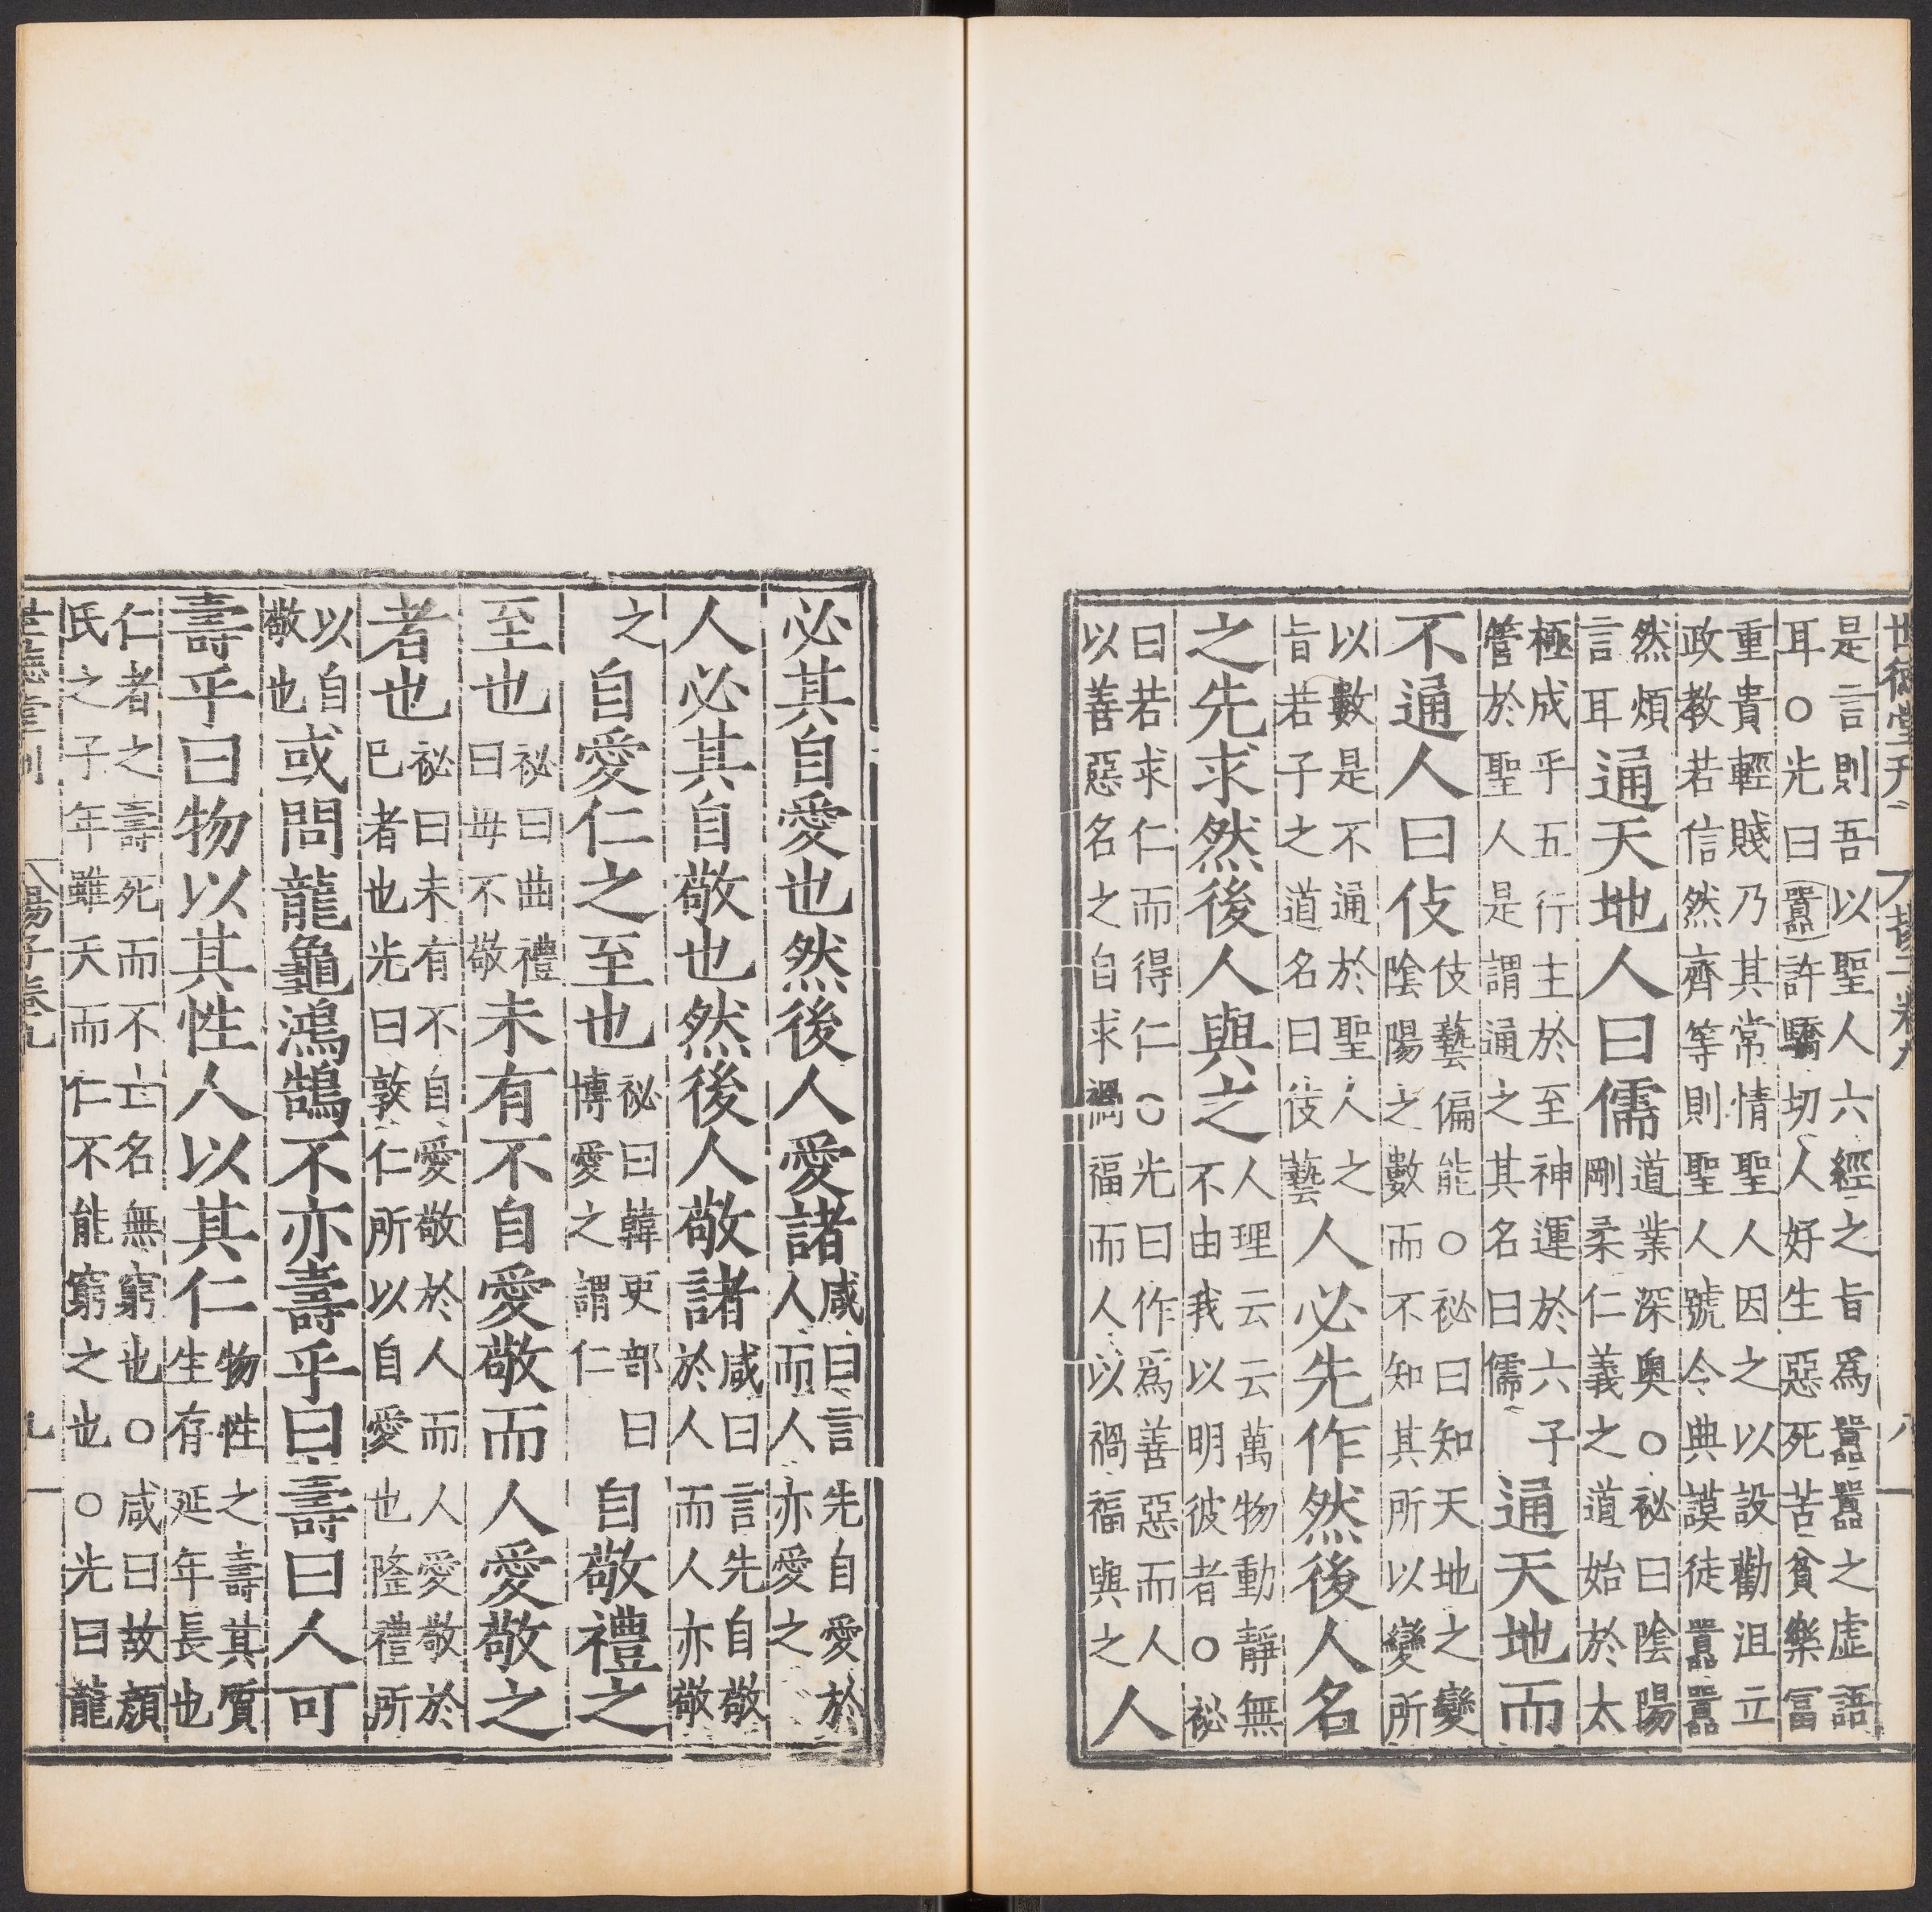 世德堂刊
揚子卷九
八
是言則吾以聖人六經之旨爲囂囂之虛語
耳○光曰囂許驕切人好生惡死苦貧樂冨
重貴輕賤乃其常情聖人因之以設勸沮立
政教若信然齊等則聖人號令典謨徒囂囂
然煩言耳通天地人曰儒道業深奧○祕曰陰陽剛柔仁義之道始於太
極成乎五行主於至神運於六子管於聖人是謂通之其名曰儒通天地而
不通人曰伎伎藝偏能○祕曰知天地之變陰陽之數而不知其所以變所
以數是不通於聖人之旨若子之道名曰伎藝人必先作然後人名
之先求然後人與之人理云云萬物動靜無不由我以明彼者○祕
曰若求仁而得仁○光曰作爲善惡而人以善惡名之自求禍福而人以禍福與之人
必其自愛也然後人愛諸咸曰言先自愛於人而人亦愛之
人必其自敬也然後人敬諸咸曰言先自敬於人而人亦敬
之自愛仁之至也祕曰韓吏部曰博愛之謂仁自敬禮之
至也祕曰曲禮曰毋不敬未有不自愛敬而人愛敬之
者也祕曰未有不自愛敬於人而人愛敬於巳者也光曰敦仁所以自愛也隆禮所
以自敬也或問龍龜鴻鵠不亦壽乎曰壽曰人可
壽乎曰物以其性人以其仁物性之壽其質生存延年長也
仁者之壽死而不亡名無窮也○咸曰故顏
氏之子年雖夭而仁不能窮之也○光曰龍
世德堂刊
揚子卷九
九